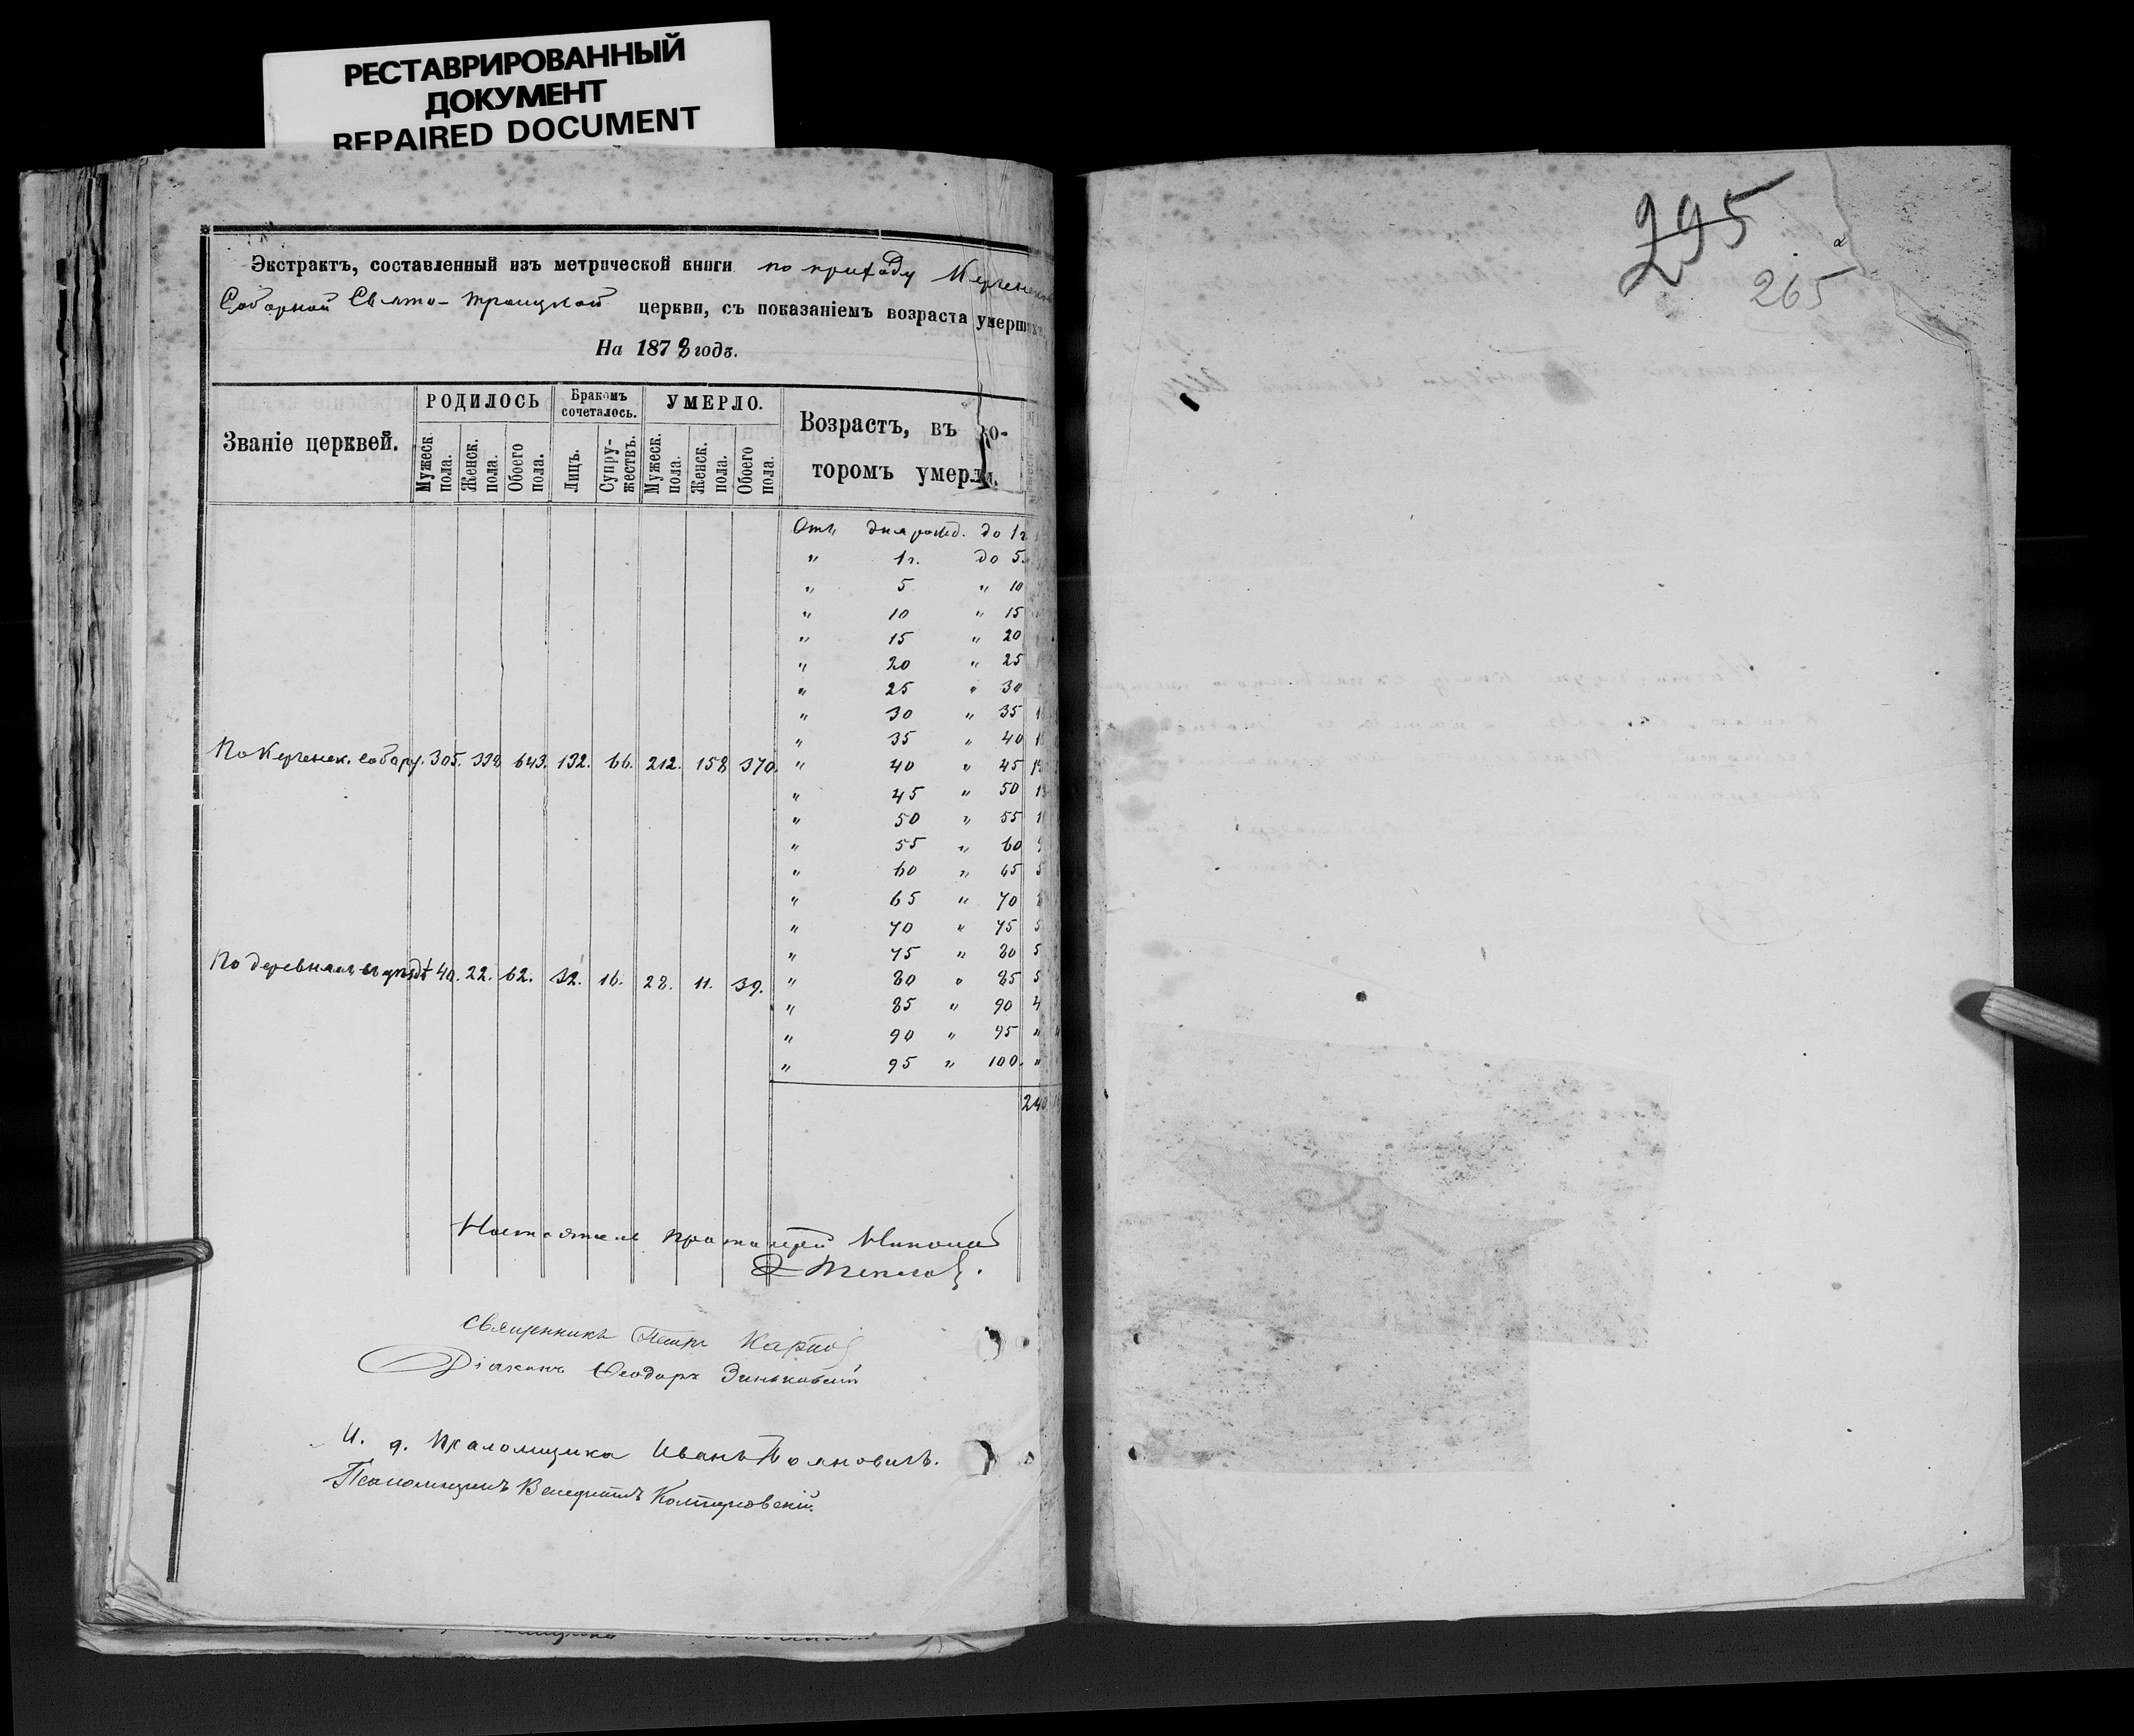 РЕСТАВРИРОВАННЫЙ
ДОКУМЕНТ
REPAIRED DOCUMENT
295
265
Экстрактъ, составленный изъ метрической книги по приходу Керченской
Соборной Свято-Троицкой церкви, съ показаніемъ возраста умершихъ
На 1878 годъ.
Званіе церквей.
РОДИЛОСЬ
Мужеск. пола.
Женск. пола.
Обоего пола.
Бракомъ сочеталось.
Лицъ.
Супружествъ.
УМЕРЛО.
Мужеск. пола.
Женск. пола.
Обоего пола.
Возрастъ, въ ко-
торомъ умерли.
Отъ дня рожд. до 1 г.
" 1 г. до 5
" 5 " 10
" 10 " 15
" 15 " 20
" 20 " 25
" 25 " 30
" 30 " 35
" 35 " 40
По Керченск. собору. 305. 338 643. 132. 66. 212. 158 370. " 40 " 45
" 45 " 50
" 50 " 55
" 55 " 60
" 60 " 65 5
" 65 " 70
" 70 " 75 5
" 75 " 80 5
По деревнямъ и уезд. 40. 22. 62. 32. 16. 28. 11. 39. " 80 " 85 5
" 85 " 90 4
" 90 " 95 "
" 95 " 100. "
240
Настоятель протоіерей Николай
Священникъ Петръ Карпов
Діаконъ Ѳеодоръ Зиньковскій
И. д. Псаломщика Иванъ Пояновичъ.
Псаломщикъ Венедиктъ